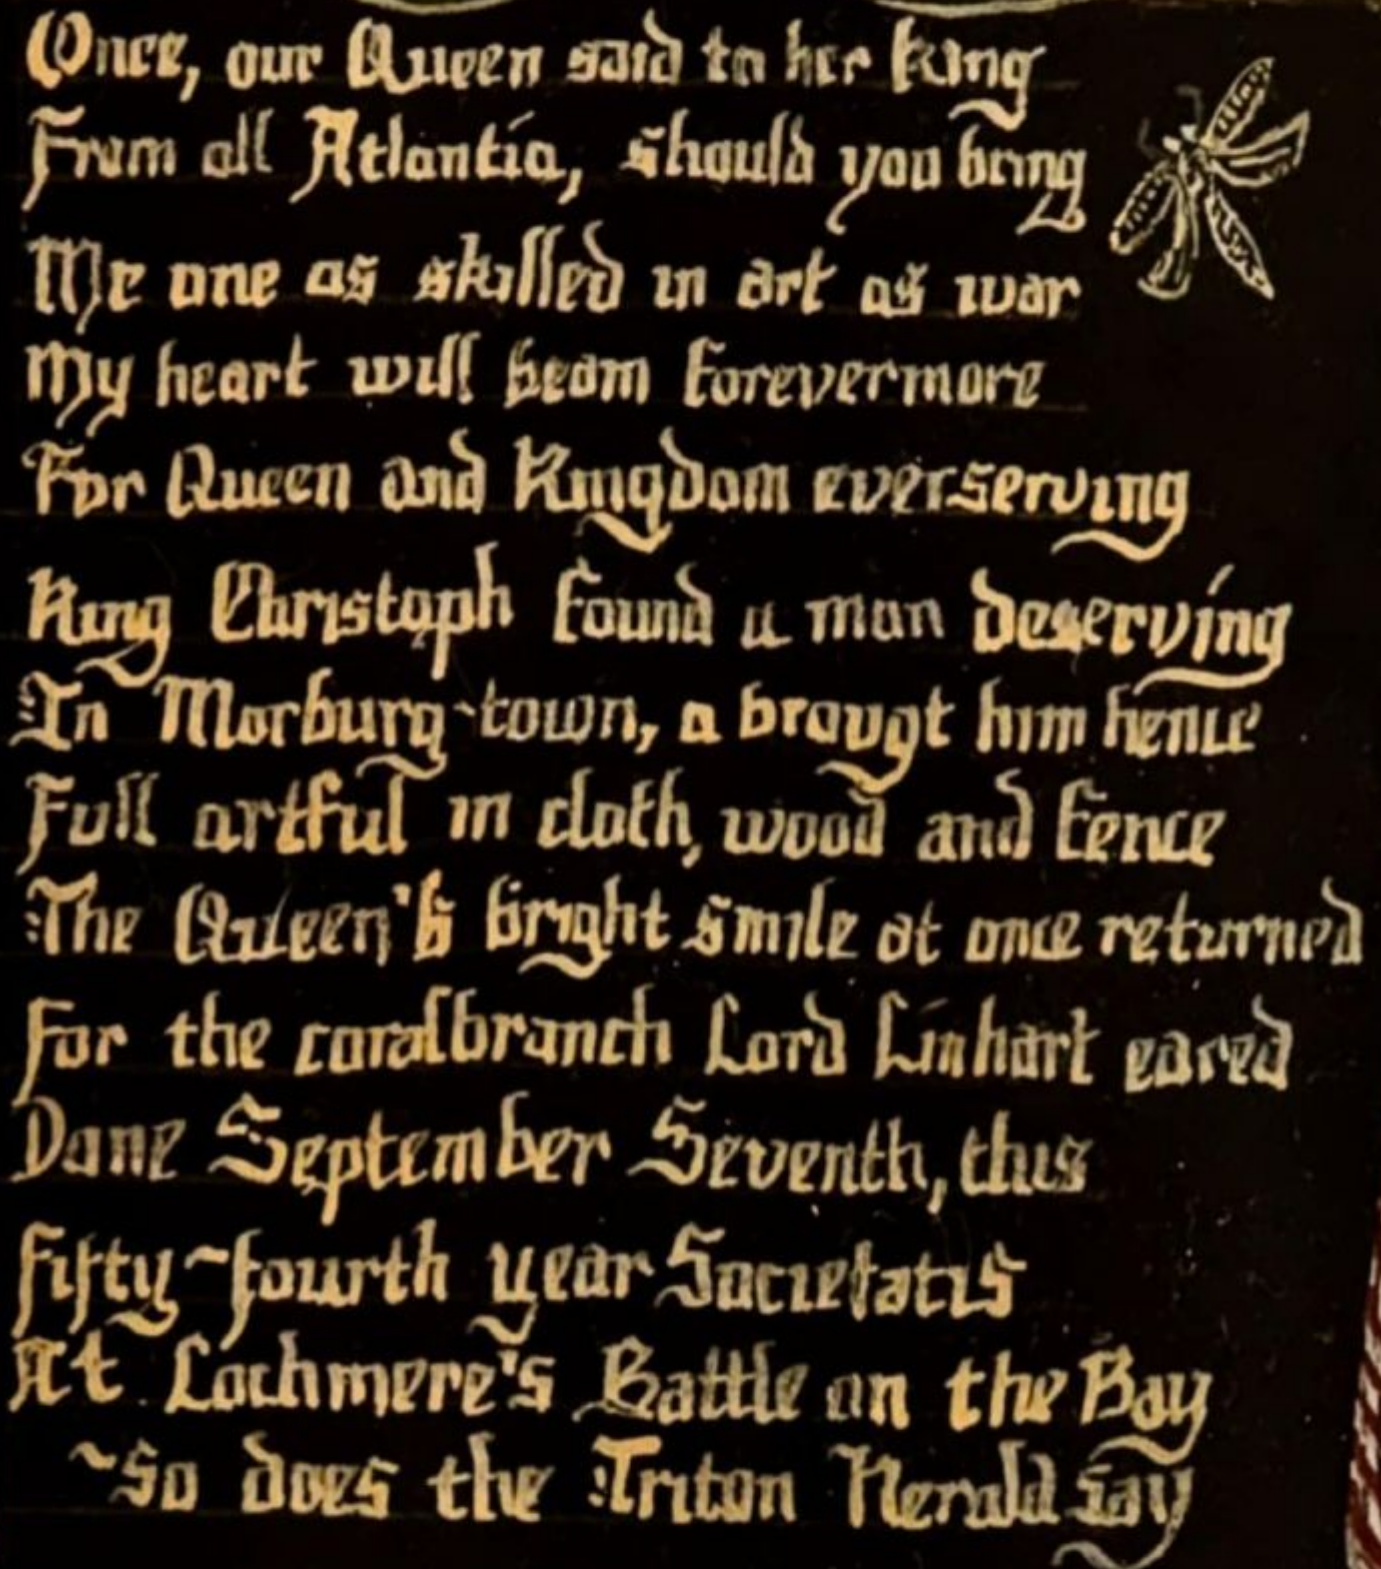 Once, our Queen said to her King
From all Atlantia, should you bring
Me one as skilled in art as war
My heart will beam forevermore
For Queen and Kingdom ever serving
King Christoph found a man deserving
In Marburg-town, a brougt him hence
Full artful in cloth, wood and fence
The Queen's bright smile at once returned
For the coralbranch Lord Linhart eared
Done September Seventh, this
Fifty~fourth year Societatis
At Lochmere's Battle on the Bay
~So does the Triton Herald say